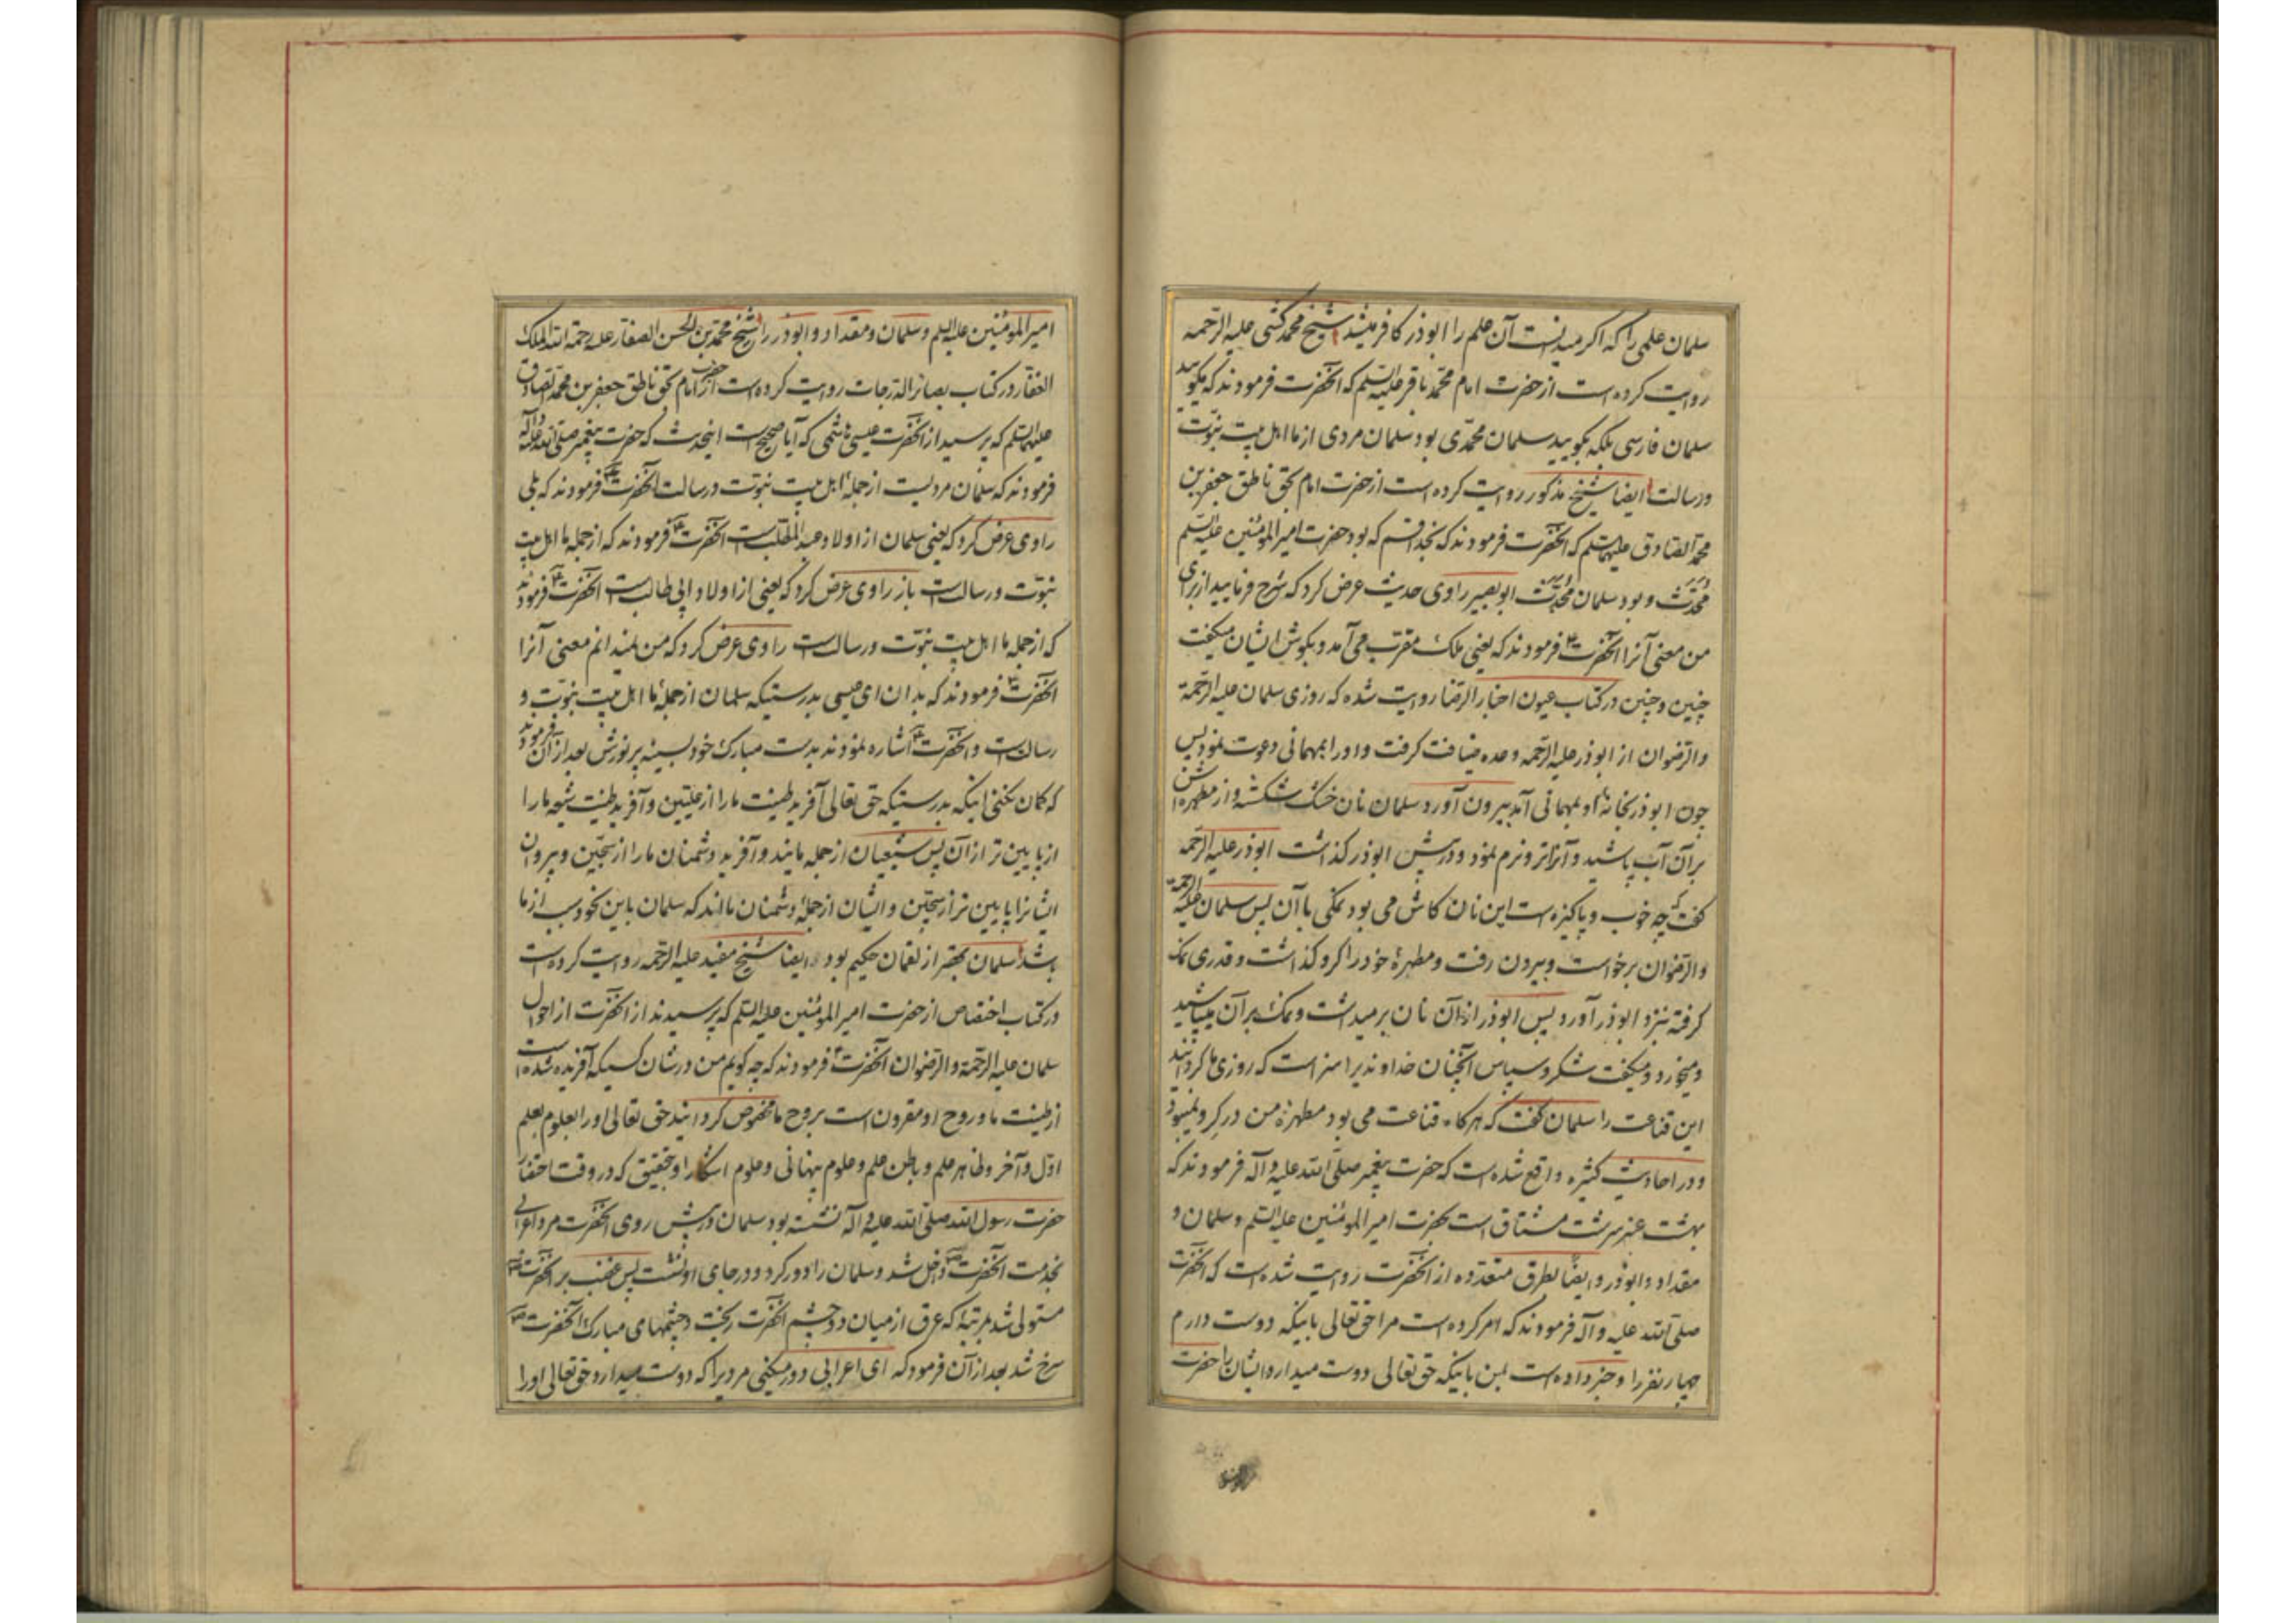 سلمان علمی را که اکر میدانست آن علم را ابوذر کافر میشد شیخ محمد کشی علیه الرحمه
روایت کرده است از حضرت امام محمد باقر علیه السلم که آنحضرت فرمودند که مکویید
سلمان فارسی بلکه بکویید سلمان محمدی بود سلمان مردی از ما اهل بیت نبوت
ورسالت ایضا شیخ مذکور روایت کرده است از حضرت امام بحق ناطق جعفر بن
محمد الصادق علیهما السلم که آنحضرت فرمودند که بخدا قسم که بود حضرت امیر المؤمنین علیه السلم
محدث و بود سلمان محدث ابو بصیر راوی حدیث عرض کرد که شرح فرمایید از برای
من معنی آنرا آنحضرت فرمودند که یعنی ملک مقرب می آمد و بکوش ایشان میکفت
چنین و چنین در کتاب عیون اخبار الرضا روایت شده که روزی سلمان علیه الرحمة
والرضوان از ابوذر علیه الرحمه وعده ضیافت کرفت و او را بمهمانی دعوت نمود پس
چون ابوذر بخانه او بمهمانی آمد بیرون آورد سلمان نان خشک شکسته و از مطهره اش
بر آن آب پاشید و آنرا تر و نرم نمود و در پیش ابوذر کذاشت ابوذر علیه الرحمه
کفت که چه خوب و پاکیزه است این نان کاش می بود نمکی با آن پس سلمان علیه الرحمة
والرضوان برخواست و بیرون رفت و مطهرهٔ خود را کرو کذاشت و قدری نمک
کرفته بنزد ابوذر آورد پس ابوذر از آن نان برمیداشت و نمک بر آن میپاشید
و میخورد و میکفت شکر و سپاس آنچنان خداوندیرا سزاست که روزی ما کردانند
این قناعت را سلمان کفت که هرکاه قناعت می بود مطهرهٔ من در کرو نمیبود
و در احادیث کثیره واقع شده است که حضرت پیغمبر صلی الله علیه و آله فرمودند که
بهشت عنبر سرشت مشتاق است بحضرت امیر المؤمنین علیه السلم و سلمان و
مقداد و ابوذر و ایضا بطرق متعدده از آنحضرت روایت شده است که آنحضرت
صلی الله علیه و آله فرمودند که امر کرده است مرا حق تعالی باینکه دوست دارم
چهار نفر را و خبر داده است بمن باینکه حق تعالی دوست میدارد ایشان را حضرت
امیر المؤمنین علیه السلم و سلمان و مقداد و ابوذر را شیخ محمد بن الحسن الصفار علیه رحمة الله الملک
الغفار در کتاب بصائر الدرجات روایت کرده است از حضرت امام بحق ناطق جعفر بن محمد الصادق
علیهما السلم که پرسید از آنحضرت عیسی هاشمی که آیا صحیح است اینحدیث که حضرت پیغمبر صلی الله علیه وآله
فرمودند که سلمان مردیست از جملهٔ اهل بیت نبوت و رسالت آنحضرت فرمودند که بلی
راوی عرض کرد که یعنی سلمان از اولاد عبد المطلب است آنحضرت فرمودند که از جمله ما اهل بیت
نبوت و رسالت است باز راوی عرض کرد که یعنی از اولاد ابی طالب است آنحضرت فرمودند
که از جمله ما اهل بیت نبوت و رسالت است راوی عرض کرد که من نمیدانم معنی آنرا
آنحضرت فرمودند که بدان ای عیسی بدرستیکه سلمان از جملهٔ ما اهل بیت نبوت و
رسالت است و آنحضرت اشاره نمودند بدست مبارک خود بسینه پر نورش بعد از آن فرمودند
که کمان نکنی اینکه بدرستیکه حق تعالی آفرید طینت ما را از علیین و آفرید طینت شیعه ما را
از پایین تر از آن پس شیعیان از جمله مایند و آفرید دشمنان ما را از سجین و پیروان
ایشانرا پایین تر از سجین و ایشان از جملهٔ دشمنان ما اند که سلمان باین نحو سبب از ما
باشد سلمان بهتر از لقمان حکیم بود و ایضا شیخ مفید علیه الرحمه روایت کرده است
در کتاب اختصاص از حضرت امیر المؤمنین علیه السلم که پرسیدند از آنحضرت از احوال
سلمان علیه الرحمة والرضوان آنحضرت فرمودند که چه کویم من در شان کسیکه آفریده شده است
از طینت ما و روح او مقرون است بروح ما مخصوص کردانید حق تعالی او را بعلوم بعلم
اول و آخر و ظاهر علم و باطن علم و علوم پنهانی و علوم آشکارا و بتحقیق که در وقت احضار
حضرت رسول الله صلی الله علیه و آله نشسته بود سلمان در پیش روی آنحضرت مرد اعرابی
بخدمت آنحضرت داخل شد و سلمان را دور کرد و در جای او نشست پس غضب بر آنحضرت
مستولی شد بمرتبهٔ که عرق از میان دو چشم آنحضرت ریخت و چشمهای مبارک آنحضرت
سرخ شد بعد از آن فرمود که ای اعرابی دور میکنی مردیرا که دوست میدارد حق تعالی او را